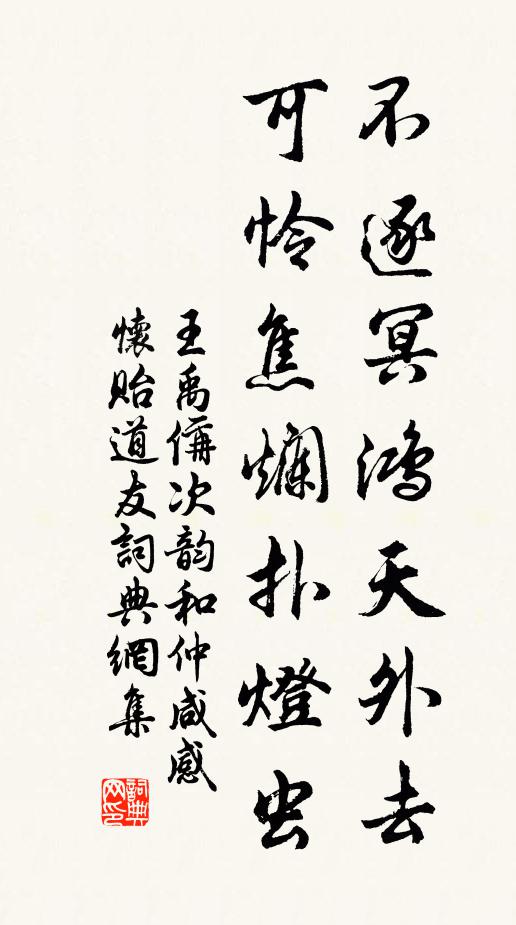 不逐冥鴻天外去
可怜焦爛扑燈虫
王禹偁次韵和仲咸感
懷貽道友詞典網集
詞典网印